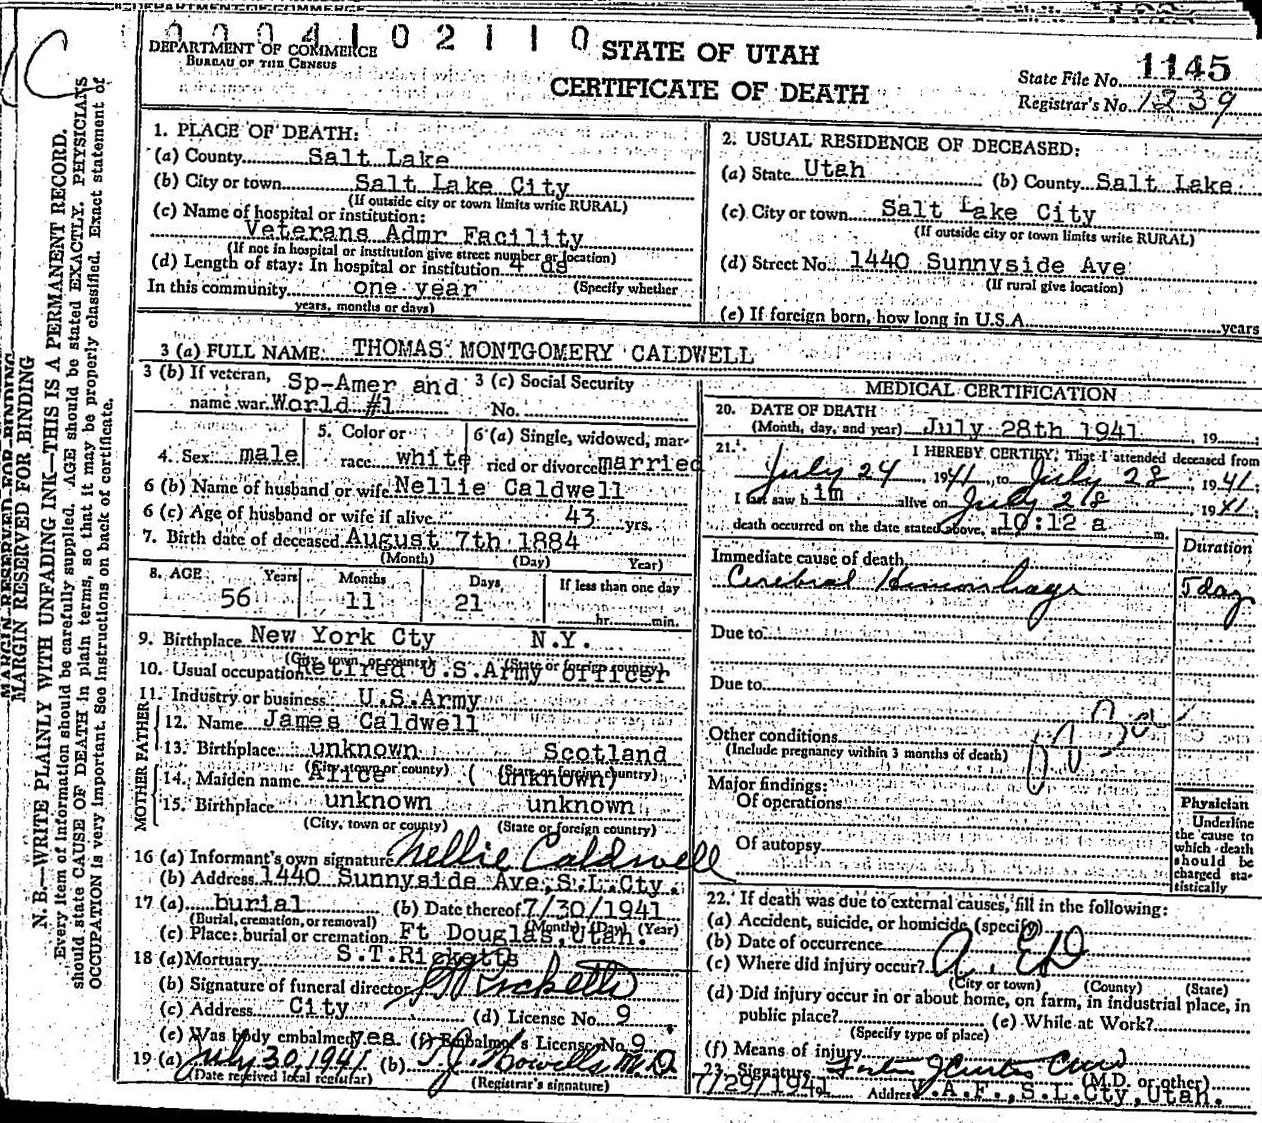 0004102110
DEPARTMENT OF COMMERCE
BUREAU OF THE CENSUS
STATE OF UTAH
CERTIFICATE OF DEATH
State File No. 1145
Registrar's No. 1239
MARGIN RESERVED FOR BINDING
N. B.—WRITE PLAINLY WITH UNFADING INK—THIS IS A PERMANENT RECORD.
Every item of information should be carefully supplied. AGE should be stated EXACTLY. PHYSICIANS
should state CAUSE OF DEATH in plain terms, so that it may be properly classified. Exact statement of
OCCUPATION is very important. See instructions on back of certificate.
1. PLACE OF DEATH:
(a) County Salt Lake
(b) City or town Salt Lake City
(If outside city or town limits write RURAL)
(c) Name of hospital or institution:
Veterans Admr Facility
(If not in hospital or institution give street number or location)
(d) Length of stay: In hospital or institution 4 ds
In this community one year (Specify whether
years, months or days)
2. USUAL RESIDENCE OF DECEASED:
(a) State Utah (b) County Salt Lake
(c) City or town Salt Lake City
(If outside city or town limits write RURAL)
(d) Street No. 1440 Sunnyside Ave
(If rural give location)
(e) If foreign born, how long in U.S.A. years
3 (a) FULL NAME THOMAS MONTGOMERY CALDWELL
3 (b) If veteran, Sp-Amer and
name war World #1
3 (c) Social Security
No.
4. Sex male
5. Color or
race white
6 (a) Single, widowed, mar-
ried or divorced married
6 (b) Name of husband or wife Nellie Caldwell
6 (c) Age of husband or wife if alive 43 yrs.
7. Birth date of deceased August 7th 1884
(Month) (Day) Year)
8. AGE Years Months Days If less than one day
56 11 21 hr. min.
9. Birthplace New York Cty N.Y.
(City, town, or county) (State or foreign country)
10. Usual occupation Retired U.S.Army Officer
11. Industry or business U.S.Army
FATHER
12. Name James Caldwell
13. Birthplace unknown Scotland
(City, town or county) (State or foreign country)
MOTHER
14. Maiden name Alice ( unknown)
15. Birthplace unknown unknown
(City, town or county) (State or foreign country)
16 (a) Informant's own signature Nellie Caldwell
(b) Address 1440 Sunnyside Ave,S.L.Cty.
17 (a) burial (b) Date thereof 7/30/1941
(Burial, cremation, or removal) (Month) (Day) (Year)
(c) Place: burial or cremation Ft Douglas,Utah.
18 (a) Mortuary S.T.Ricketts
(b) Signature of funeral director Ricketts
(c) Address City (d) License No. 9
(e) Was body embalmed yes. (f) Embalmer's License No. 9
19 (a) July 30, 1941 (b) T.J. Howells M.D.
(Date received local registrar) (Registrar's signature)
MEDICAL CERTIFICATION
20. DATE OF DEATH
(Month, day, and year) July 28th 1941, 19
21. I HEREBY CERTIFY, That I attended deceased from
July 24, 1941, to July 28, 1941;
I last saw him alive on July 28, 1941;
death occurred on the date stated above, at 10:12 a m.
Immediate cause of death Duration
Cerebral Hemorrhage 5 day
Due to
Due to
Other conditions
(Include pregnancy within 3 months of death)
Major findings:
Of operations
Of autopsy
Physician
Underline
the cause to
which death
should be
charged sta-
tistically
22. If death was due to external causes, fill in the following:
(a) Accident, suicide, or homicide (specify)
(b) Date of occurrence
(c) Where did injury occur?
(City or town) (County) (State)
(d) Did injury occur in or about home, on farm, in industrial place, in
public place? (e) While at Work?
(Specify type of place)
(f) Means of injury
23. Signature
(M.D. or other)
7/29/1941 Address V.A.F.,S.L.Cty,Utah.